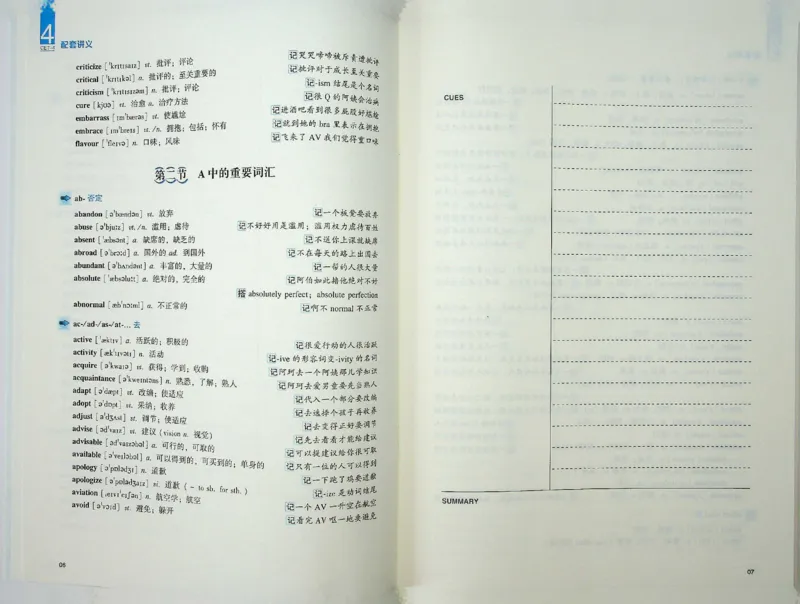 4
配套讲义
criticize [ˈkrɪtɪsaɪz] vt. 批评；评论 记哭哭啼啼被斥责遭批评
critical [ˈkrɪtɪkəl] a. 批评的；至关重要的 记批评对于成长至关重要
criticism [ˈkrɪtɪsɪzəm] n. 批评；评论 记-ism 结尾是个名词
cure [kjuə] vt. 治愈 n. 治疗方法 记很 Q 的阿姨会治病
embarrass [ɪmˈbærəs] vt. 使尴尬 记进酒吧看到很多屁股好尴尬
embrace [ɪmˈbreɪs] vt./n. 拥抱；包括；怀有 记放到她的 bra 里表示在拥抱
flavour [ˈfleɪvə] n. 口味；风味 记飞来了 AV 我们觉得重口味
第二节 A 中的重要词汇
ab- 否定
abandon [əˈbændən] vt. 放弃 记一个板凳要放弃
abuse [əˈbjuːz] vt./n. 滥用；虐待 记不好好用是滥用；滥用权力虐待百姓
absent [ˈæbsənt] a. 缺席的，缺乏的 记不送你上课就缺席
abroad [əˈbrɔːd] a. 国外的 ad. 到国外 记不在每天的路上出国去
abundant [əˈbʌndənt] a. 丰富的，大量的 记一帮的人很大量
absolute [ˈæbsəluːt] a. 绝对的，完全的 记阿伯如此撸他绝对不好
搭 absolutely perfect；absolute perfection
abnormal [æbˈnɔːml] a. 不正常的 记啊不 normal 不正常
ac-/ad-/as-/at-... 去
active [ˈæktɪv] a. 活跃的；积极的 记很爱行动的人很活跃
activity [ækˈtɪvətɪ] n. 活动 记-ive 的形容词变-ivity 的名词
acquire [əˈkwaɪə] vt. 获得；学到；收购 记阿珂去一个阿姨那儿学知识
acquaintance [əˈkweɪntəns] n. 熟悉，了解；熟人 记阿珂去爱男重要先当熟人
adapt [əˈdæpt] vt. 改编；使适应 记代入一个部分要改编
adopt [əˈdɒpt] vt. 采纳；收养 记去选择个孩子再收养
adjust [əˈdʒʌst] vt. 调节；使适应 记去变得正好要调节
advise [ədˈvaɪz] vt. 建议（vision n. 视觉） 记先去看看才能给建议
advisable [ədˈvaɪzəbl] a. 可行的，可取的 记可以提建议给你很可取
available [əˈveɪləbl] a. 可以得到的，可买到的；单身的 记只有一位的人可以得到
apology [əˈpɒlədʒɪ] n. 道歉 记一下跑了鸡要道歉
apologize [əˈpɒlədʒaɪz] vi. 道歉（~ to sb. for sth.） 记-ize 是动词结尾
aviation [ˌeɪvɪˈeɪʃən] n. 航空学；航空 记一个 AV 一升空在航空
avoid [əˈvɔɪd] vt. 避免；躲开 记看完 AV 呕一地要避免
06
CUES
SUMMARY
07